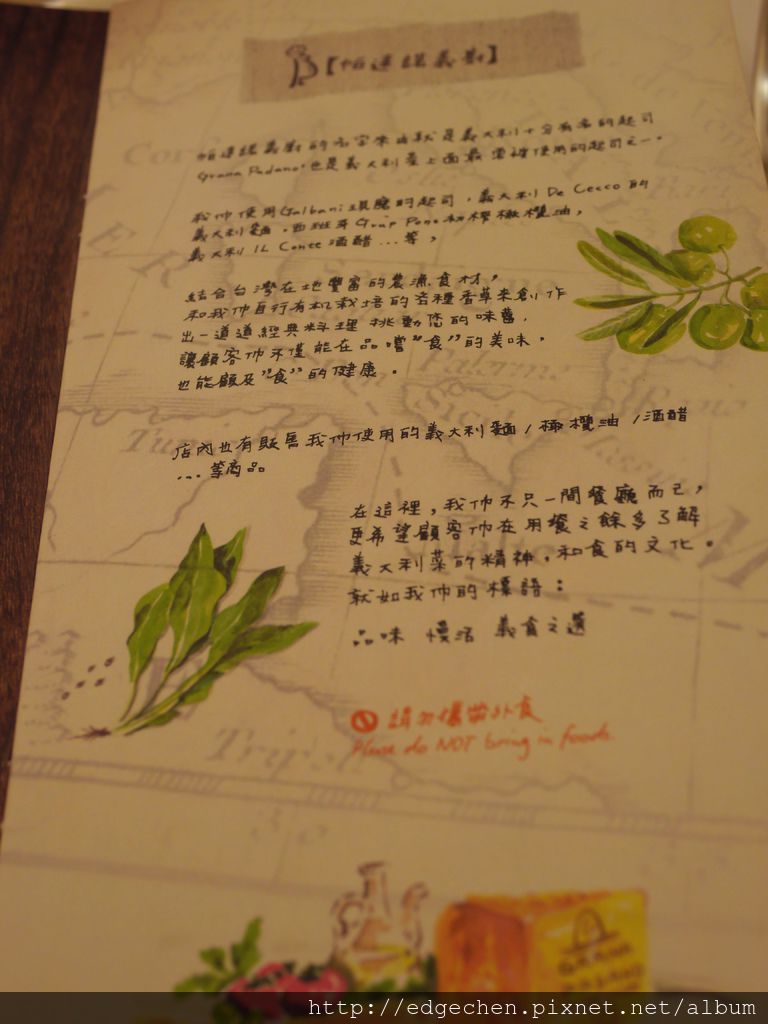 【帕達諾義廚】
帕達諾義廚的名字來由就是義大利十分有名的起司
Grana Padano,也是義大利菜上面最常被使用的起司之一。
我們使用Galbani頂級的起司,義大利De Cecco的
義大利麵,西班牙Grup Pons初榨橄欖油,
義大利IL Conte酒醋...等,
結合台灣在地豐富的農漁食材,
和我們自行有机栽培的各種香草來創作
出一道道經典料理 挑動您的味蕾,
讓顧客們不僅能在品嚐"食"的美味,
也能顧及"食"的健康。
店內也有販售我們使用的義大利麵/橄欖油/酒醋
....等商品
在這裡,我們不只一間餐廳而已,
更希望顧客們在用餐之餘多了解
義大利菜的精神,和食的文化。
就如我們的標語:
品味 慢活 義食之選
請勿攜帶外食
Please do NOT bring in foods.
GRANA
PADANO
http://edgechen.pixnet.net/album